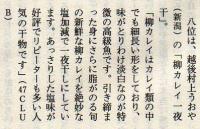 八位は、越後村上うおや
（新潟）の「柳カレイ一夜
干」。
「柳カレイはカレイ類の中
でも細長い形をしており、
味がとりわけ淡白なのが特
徴の高級魚です。引き締ま
った身にさらに脂がのる旬
の新鮮な柳カレイを絶妙な
塩加減で一夜干しにしてい
ます。あっさりした塩味が
好評でリピーターも多い人
気の干物です」（47CLU
B）